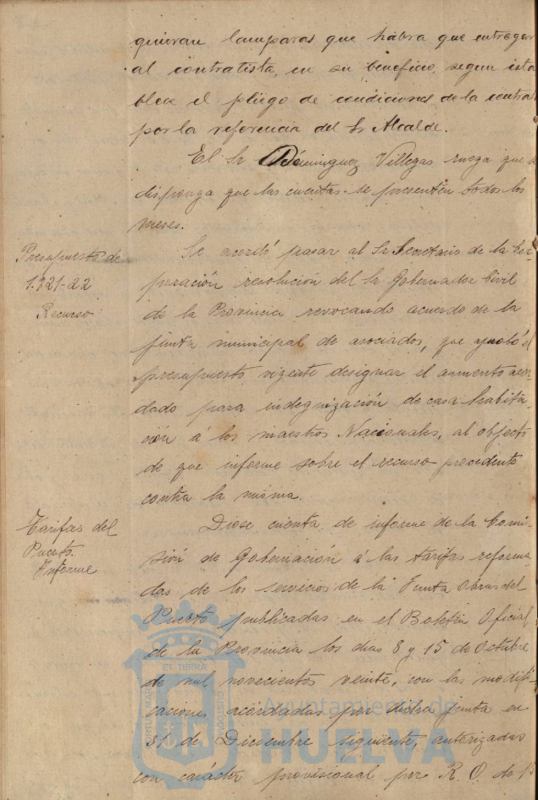 quieran lamparas que habra que entregar
al contratista, en su beneficio, segun esta
blece el pliego de condiciones de la contrat
por la referencia del Sr Alcalde.
El Sr Dominguez Villegas ruega que se
disponga que las cuentas se presenten todos los
meses.
Presupuesto de
1.921-22
Recurso
Se acordó pasar al Sr Secretario de la Cor
poración resolución del Sr Gobernador Civil
de la Provincia revocando acuerdo de la
Junta municipal de asociados, que aprobó el
presupuesto vigente designar el aumento acor
dado para indegnización de casa habita
ción á los maestros Nacionales, al objeto
de que informe sobre el recurso procedente
contra la misma.
Tarifas del
Puerto.
Informe
Diose cuenta de informe de la Comi
sión de Gobernación á las tarifas reforma
das de los servicios de la Junta Obras del
Puerto publicadas en el Boletin Oficial
de la Provincia los dias 8 y 15 de Octubre
de mil novecientos veinte, con las modifi
caciones acordadas por dicha Junta en
31 de Diciembre siguiente, autorizadas
con carácter provisional por R. O. de 13
Ayuntamiento de
HUELVA